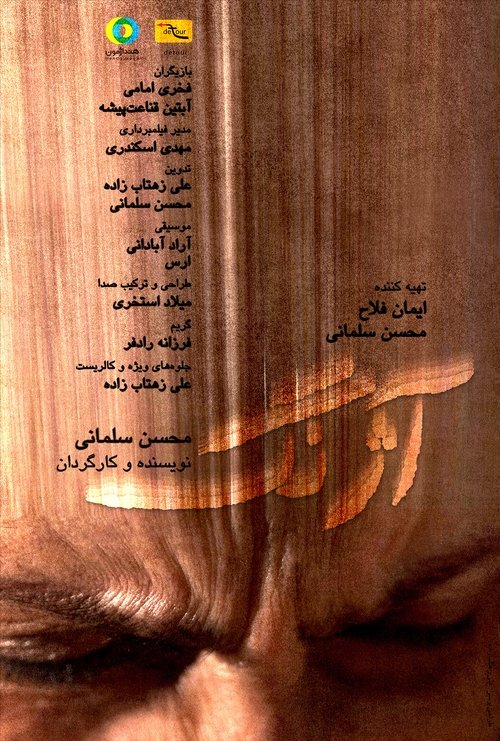 هنداژمون
detour
detour
بازیگران
فخری امامی
آبتین قناعت‌پیشه
مدیر فیلمبرداری
مهدی اسکندری
تدوین
علی زهتاب زاده
محسن سلمانی
موسیقی
آراد آبادانی
ارس
طراحی و ترکیب صدا
میلاد استخری
گریم
فرزانه رادفر
جلوه‌های ویژه و کالریست
علی زهتاب زاده
تهیه کننده
ایمان فلاح
محسن سلمانی
آژنگ
محسن سلمانی
نویسنده و کارگردان